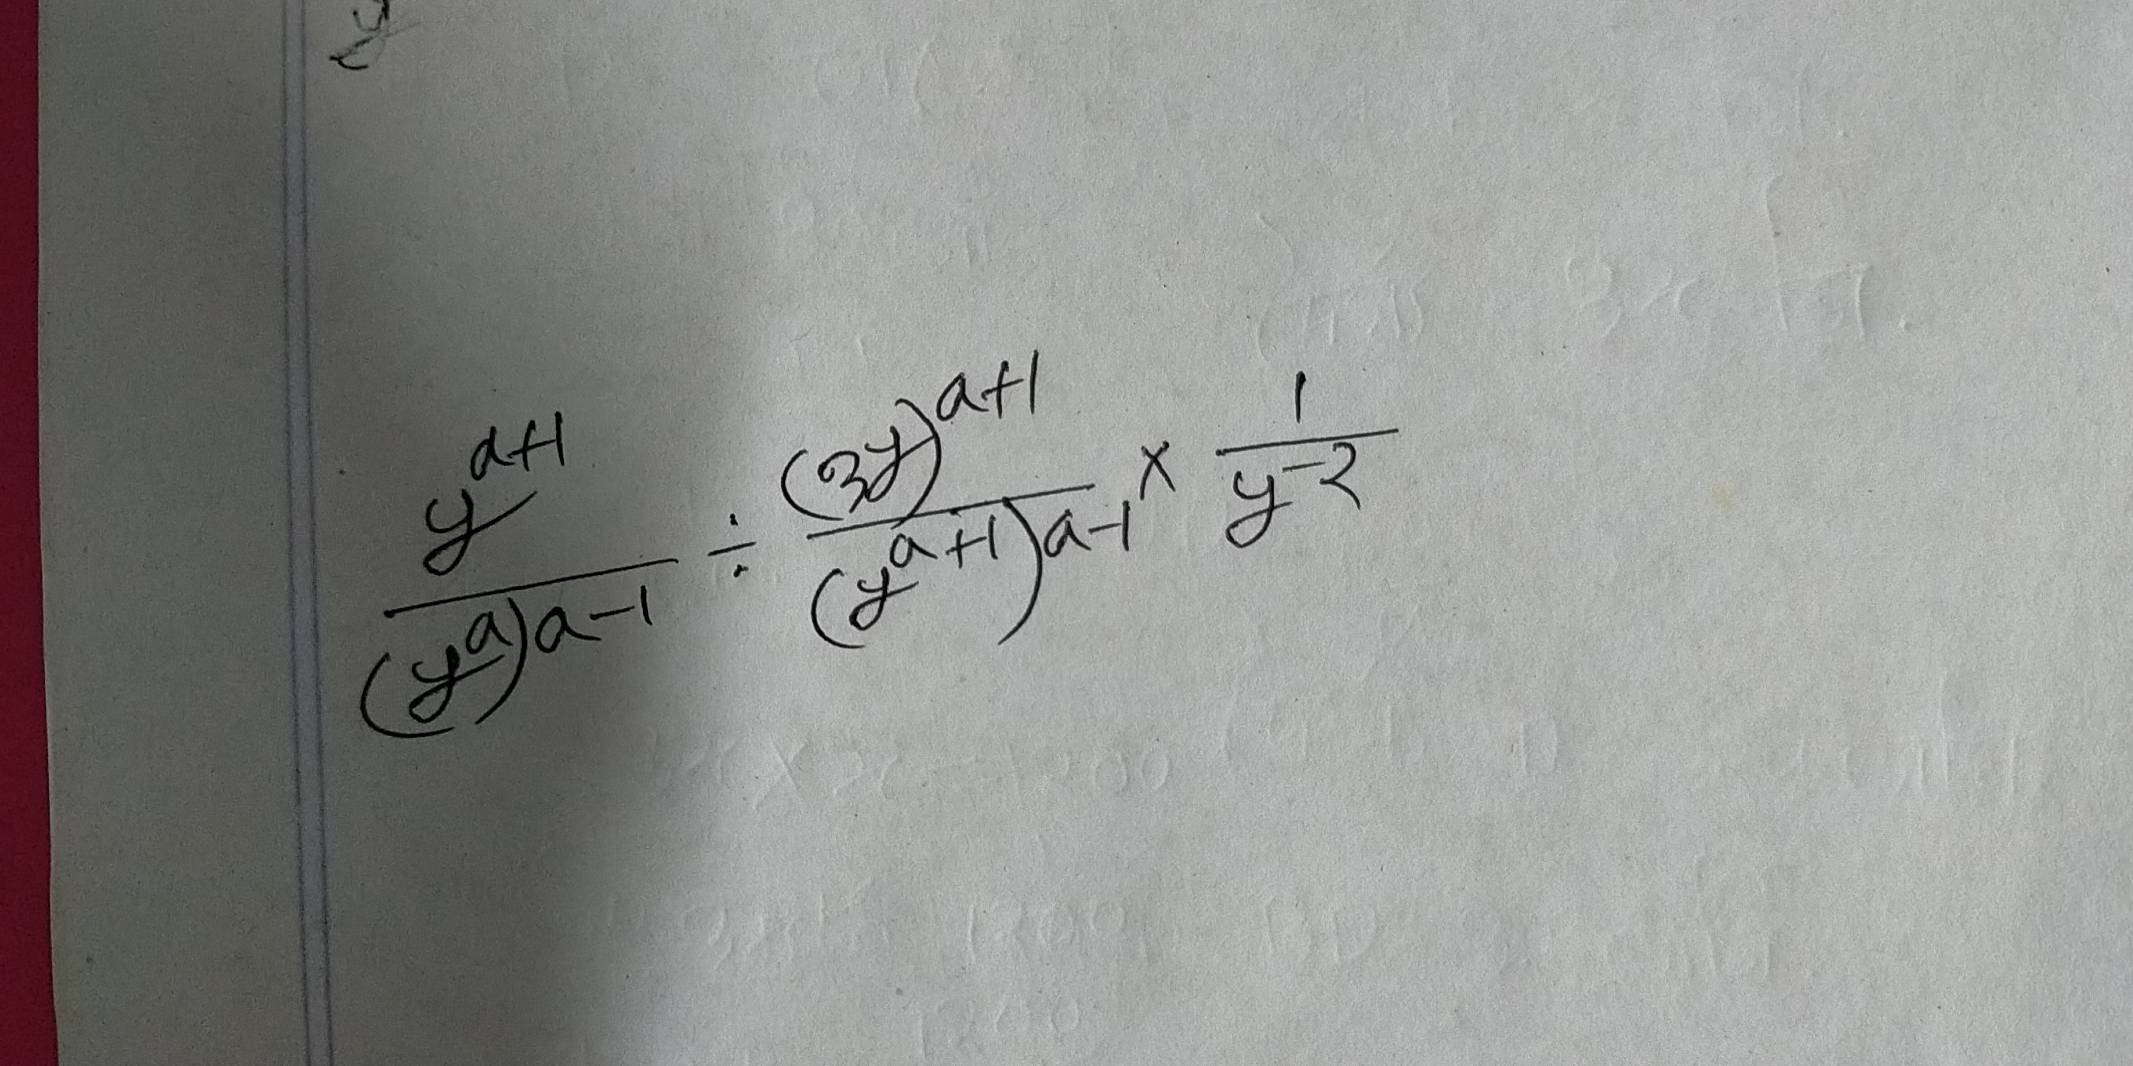 y
y^{a+1}/(y^a)^{a-1} ÷ (3y)^{a+1}/(y^{a+1})^{a-1} × 1/y^{-2}